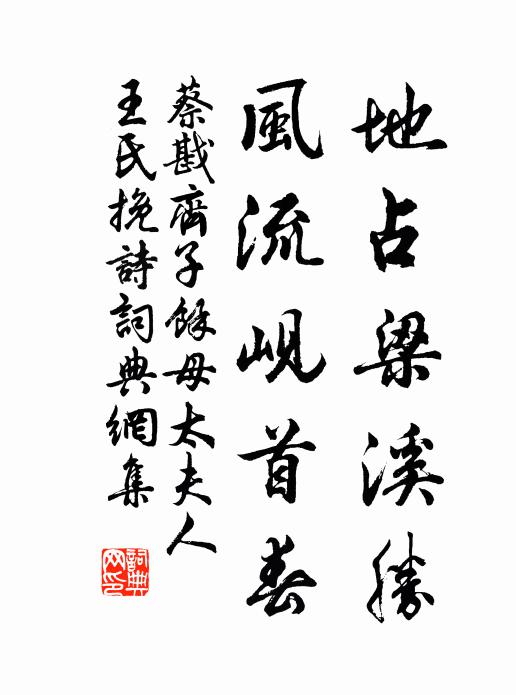 地占梁溪勝
風流峴首春
蔡戡齊子餘母太夫人
王氏挽詩詞典網集
詞典
网印